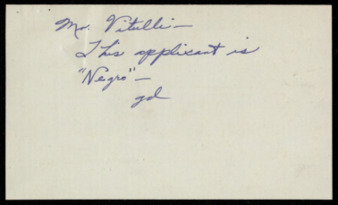 Mr. Vitulli—
This applicant is
"Negro"—
gd